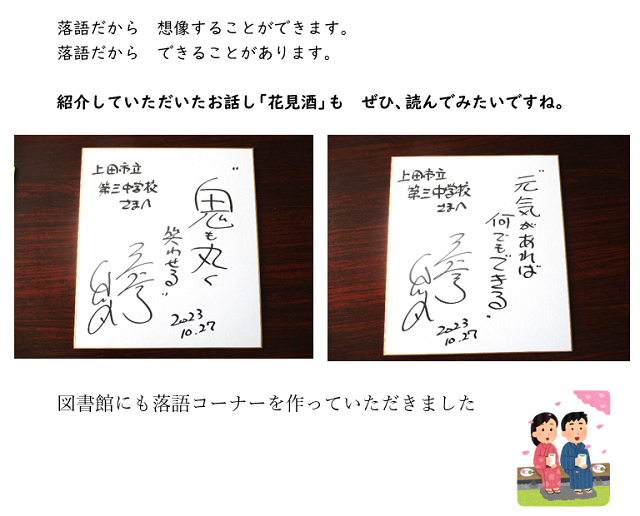 落語だから　想像することができます。
落語だから　できることがあります。
紹介していただいたお話し「花見酒」も　ぜひ、読んでみたいですね。
上田市立
第三中学校
さまへ
"鬼も丸く
笑わせる"
2023
10.27
上田市立
第三中学校
さまへ
"元気があれば
何でもできる"
2023
10.27
図書館にも落語コーナーを作っていただきました